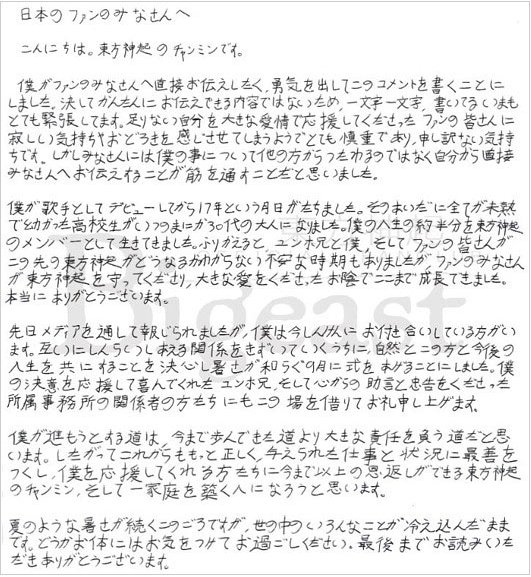 日本のファンのみなさんへ
こんにちは。東方神起のチャンミンです。
僕がファンのみなさんへ直接お伝えしたく、勇気を出してこのコメントを書くことに
しました。決してかんたんにお伝えできる内容ではないため、一文字一文字、書いてるいまも
とても緊張してます。足りない自分を大きな愛情で応援してくださった ファンの皆さんに
寂しい気持ちやおどろきを感じさせてしまうようでとても慎重であり、申し訳ない気持
ちです。しかしみなさんには僕の事について他の方からつたわるのではなく自分から直接
みなさんへお伝えすることが筋を通すことだと思いました。
僕が歌手としてデビューしてから17年という月日がたちました。そのあいだに全てが未熟
で幼かった高校生がいつのまにか30代の大人になりました。僕の人生の約半分を東方神起
のメンバーとして生きてきました。ふりかえると、ユンホ兄と僕、そしてファンの皆さんが
この先の東方神起がどうなるかわからない不安な時期もありましたが、ファンのみなさん
が東方神起を守ってくださり、大きな愛をくださったお陰でここまで成長できました。
本当にありがとうございます。
Bigeast
先日メディアを通して報じられましたが、僕は今しんけんにお付き合いしている方がい
ます。互いにしんらいしあえる関係をきずいていくうちに、自然とこの方と今後の
人生を共にすることを決心し暑さが和らぐ9月に式をあげることにしました。僕
の決意を応援して喜んでくれたユンホ兄、そして心からの助言と忠告をくださった
所属事務所の関係者の方たちにもこの場を借りてお礼申し上げます。
僕が進もうとする道は、今まで歩んできた道より大きな責任を負う道だと思
います。したがってこれからももっと正しく、与えられた仕事と状況に最善を
つくし、僕を応援してくれる方たちに今まで以上の恩返しができる東方神起
のチャンミン、そして一家庭を築く人になろうと思います。
夏のような暑さが続くこのごろですが、世の中のいろんなことが冷え込んだまま
です。どうかお体にはお気をつけてお過ごしください。最後までお読みいた
だきありがとうございます。